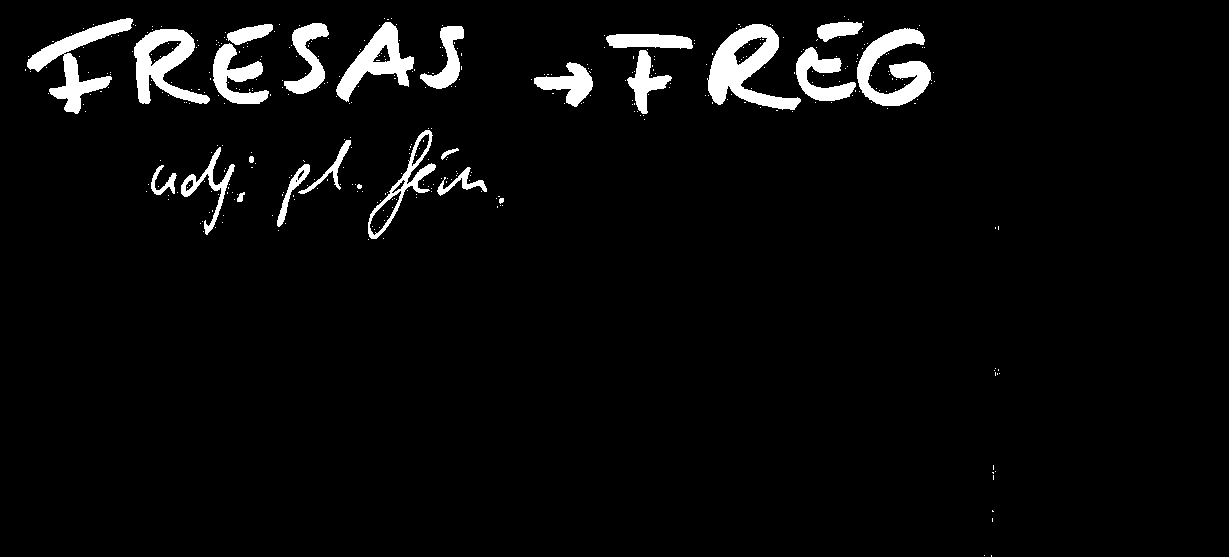 FRESAS → FREG
adj. pl. fém.